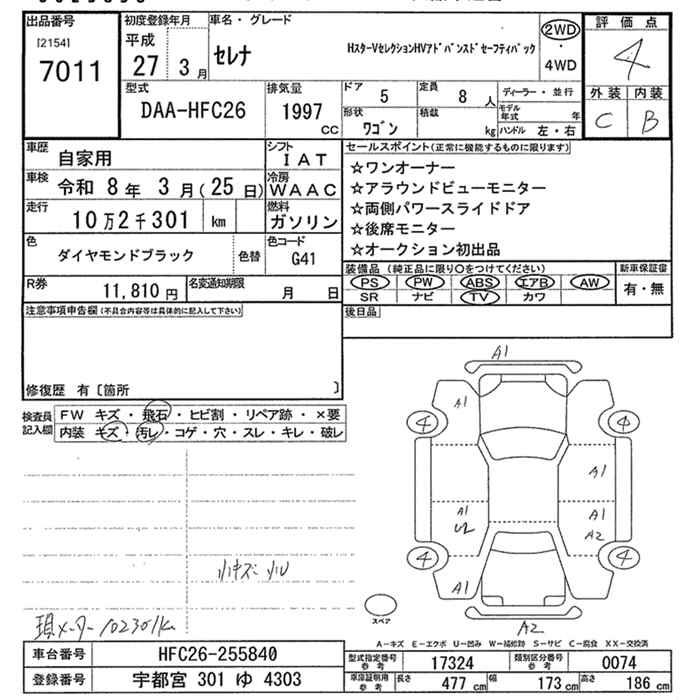 出品番号
[2154]
7011
初度登録年月
平成
27 3 月
車名・グレード
セレナ
HスターVセレクションHVアドバンスドセーフティパック
2WD
・
4WD
評価点
4
外装 内装
C B
型式
DAA-HFC26
排気量
1997
CC
ドア 5
定員 8 人
形状 ワゴン
積載 kg
ディーラー・並行
モデル年式 年
ハンドル 左・右
車歴 自家用
シフト
IAT
車検 令和 8 年 3 月(25 日)
冷房
WAAC
走行 10万2千301 km
燃料
ガソリン
色 ダイヤモンドブラック
色替
色コード
G41
R券 11,810 円
名変通知期限 月 日
セールスポイント(正常に機能するものに限ります)
☆ワンオーナー
☆アラウンドビューモニター
☆両側パワースライドドア
☆後席モニター
☆オークション初出品
装備品(純正品に限り○をつけてください)
新車保証書
PS PW ABS エアB AW
SR ナビ TV カワ
有・無
後日品
注意事項申告欄(不具合内容等は具体的に記入して下さい)
修復歴 有〔箇所 〕
検査員記入欄
FW キズ・飛石・ヒビ割・リペア跡・×要
内装 キズ・汚レ・コゲ・穴・スレ・キレ・破レ
A1
A1
4 4
A1
A1 A1
U2 A2
4 4
A1
A2
スペア
小キズ 小U
現メーター102301km
A-キズ E-エクボ U-凹み W-補修跡 S-サビ C-腐食 XX-交換済
車台番号 HFC26-255840
登録番号 宇都宮 301 ゆ 4303
型式指定番号参考 17324
類別区分番号参考 0074
車庫証明用参考 長さ 477 cm 幅 173 cm 高さ 186 cm